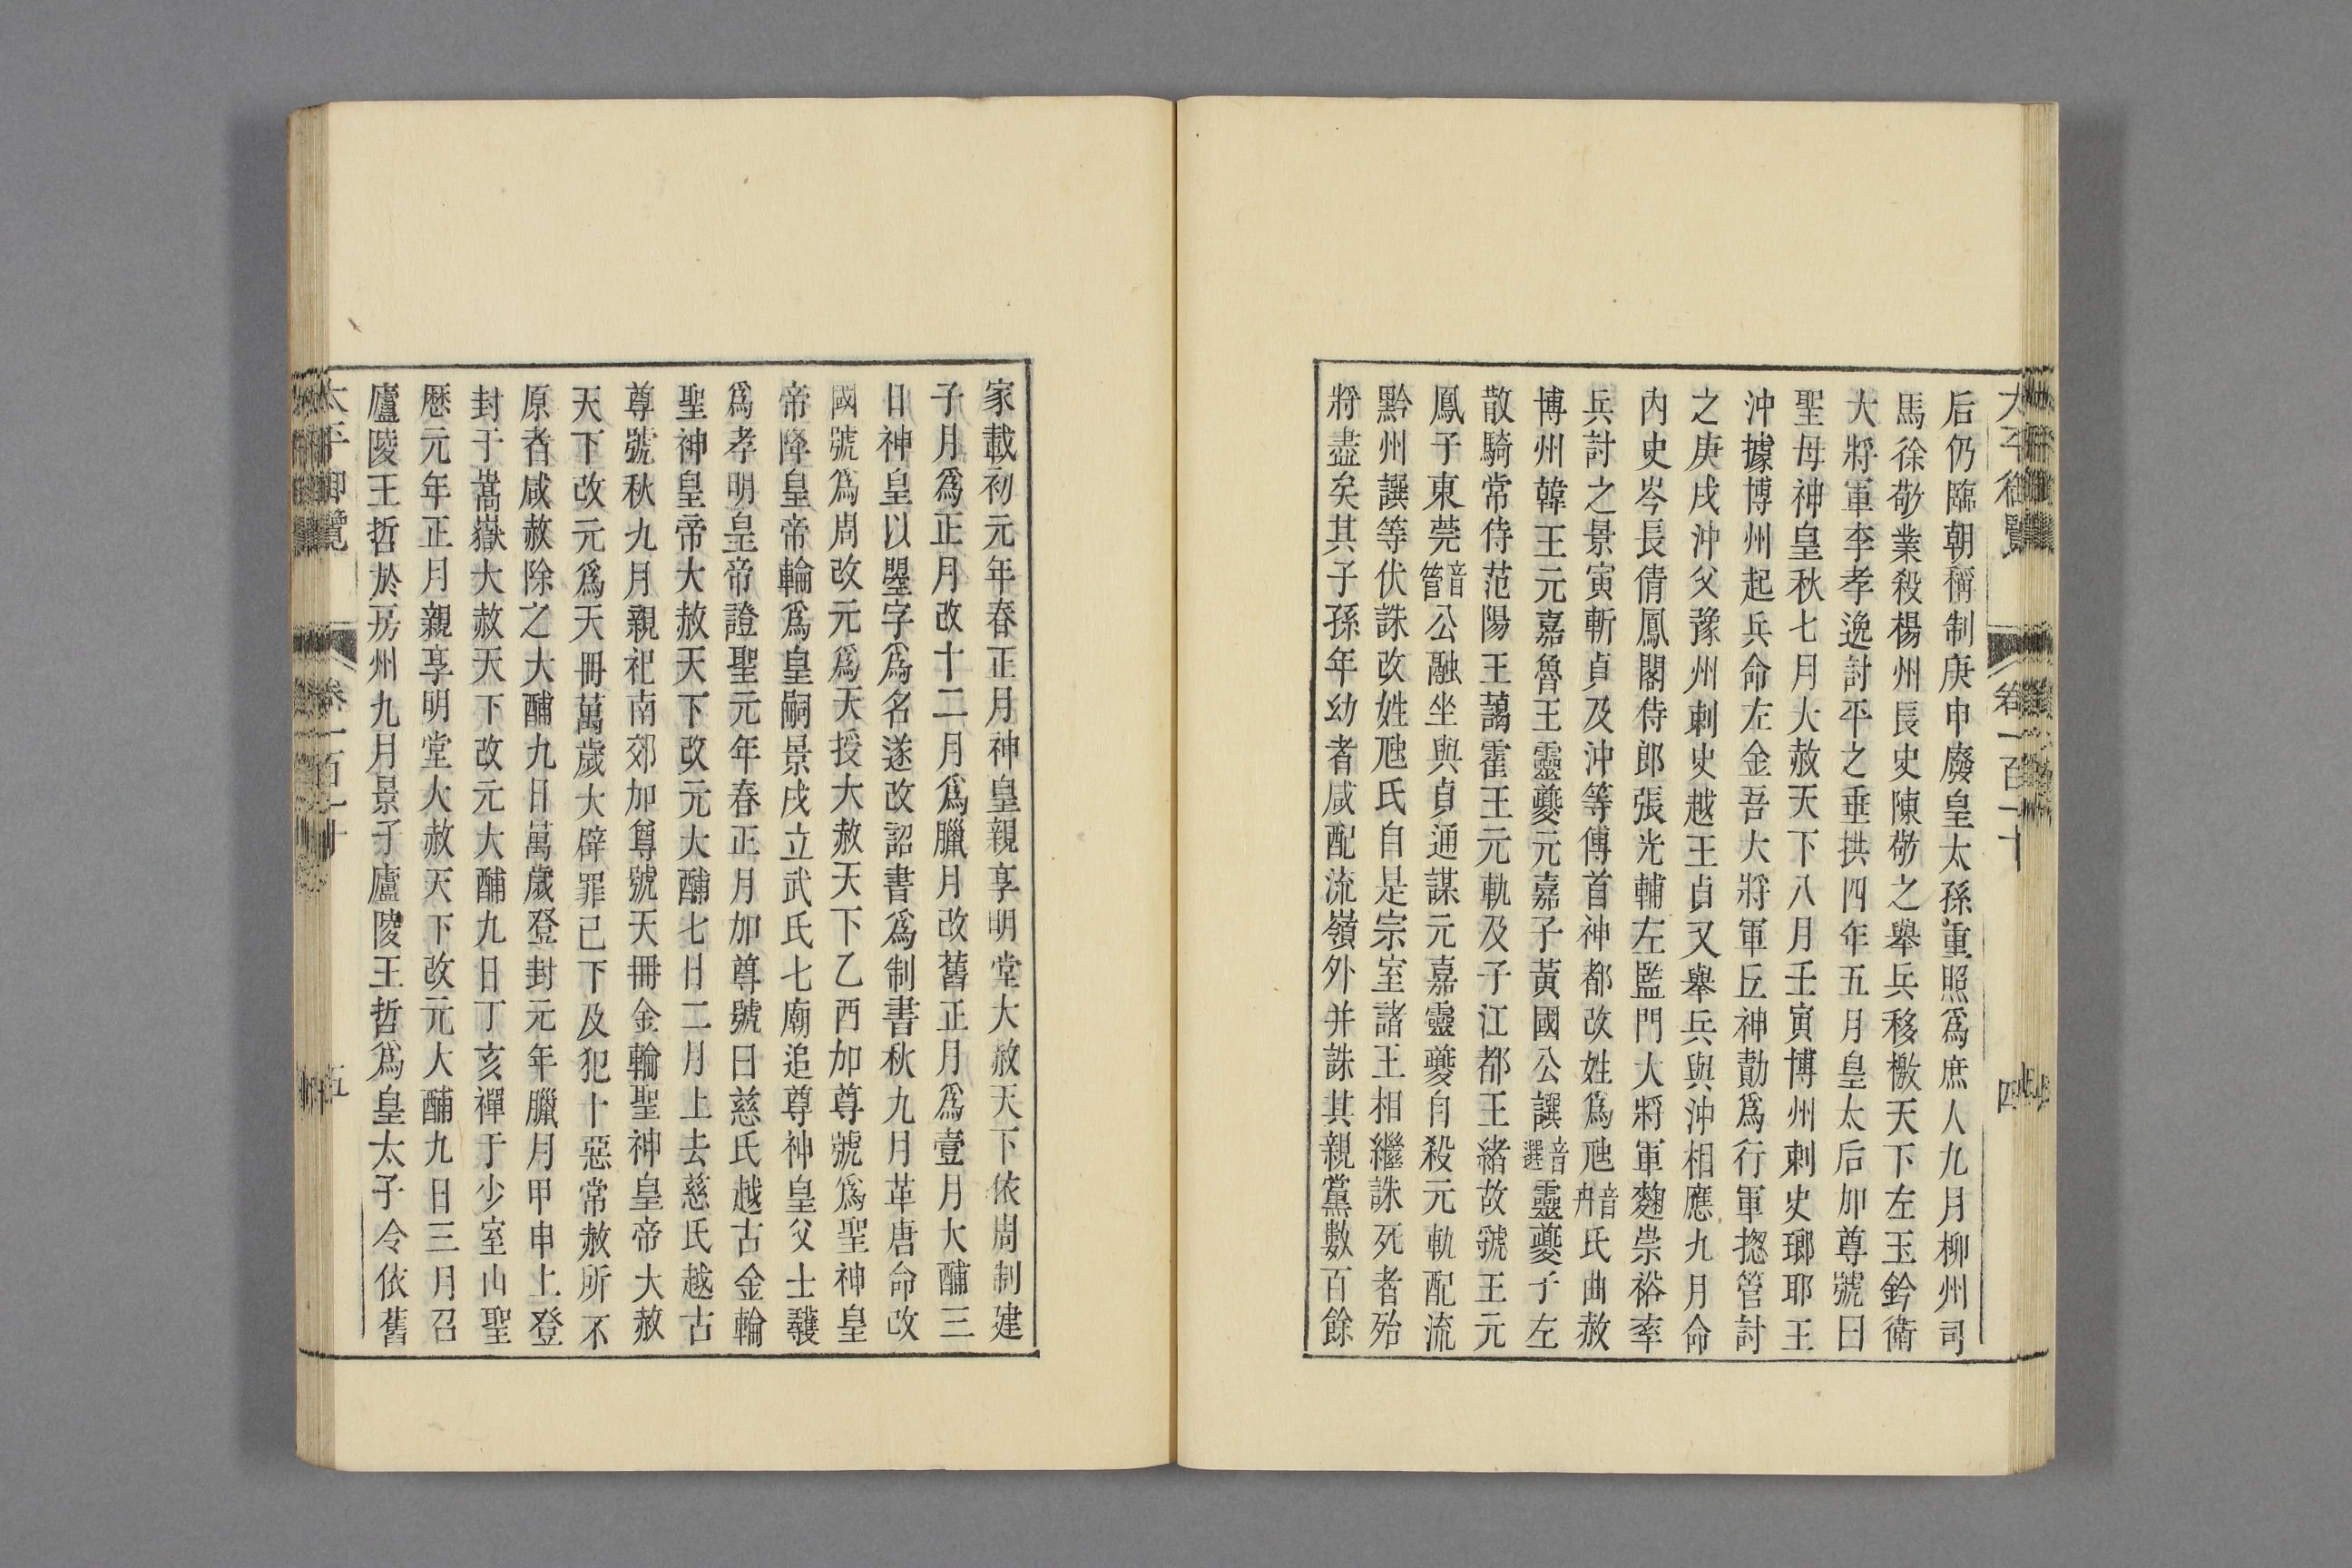 后仍臨朝稱制庚申廢皇太孫重照爲庶人九月柳州司
馬徐敬業殺楊州長史陳敬之舉兵移檄天下左玉鈐衛
大將軍李孝逸討平之垂拱四年五月皇太后加尊號曰
聖母神皇秋七月大赦天下八月壬寅博州刺史瑯耶王
沖據博州起兵命左金吾大將軍丘神勣爲行軍揔管討
之庚戌沖父豫州刺史越王貞又舉兵與沖相應九月命
內史岑長倩鳳閣侍郎張光輔左監門大將軍麴崇裕率
兵討之景寅斬貞及沖等傳首神都改姓爲虺音卉氏曲赦
博州韓王元嘉魯王靈夔元嘉子黃國公譔音選靈夔子左
散騎常侍范陽王藹霍王元軌及子江都王緒故虢王元
鳳子東莞音管公融坐與貞通謀元嘉靈夔自殺元軌配流
黔州譔等伏誅改姓虺氏自是宗室諸王相繼誅死者殆
將盡矣其子孫年幼者咸配流嶺外并誅其親黨數百餘
家載初元年春正月神皇親享明堂大赦天下依周制建
子月爲正月改十二月爲臘月改舊正月爲壹月大酺三
日神皇以曌字爲名遂改詔書爲制書秋九月革唐命改
國號爲周改元爲天授大赦天下乙酉加尊號爲聖神皇
帝降皇帝輪爲皇嗣景戌立武氏七廟追尊神皇父士彠
爲孝明皇帝證聖元年春正月加尊號曰慈氏越古金輪
聖神皇帝大赦天下改元大酺七日二月上去慈氏越古
尊號秋九月親祀南郊加尊號天冊金輪聖神皇帝大赦
天下改元爲天冊萬歲大辟罪已下及犯十惡常赦所不
原者咸赦除之大酺九日萬歲登封元年臘月甲申上登
封于嵩嶽大赦天下改元大酺九日丁亥禪于少室山聖
曆元年正月親享明堂大赦天下改元大酺九日三月召
廬陵王哲於房州九月景子廬陵王哲爲皇太子令依舊
太平御覽 卷一百一十 五